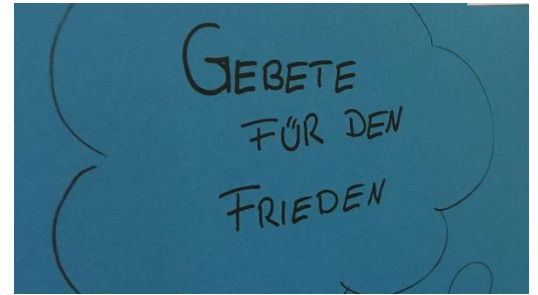 GEBETE
FÜR DEN
FRIEDEN